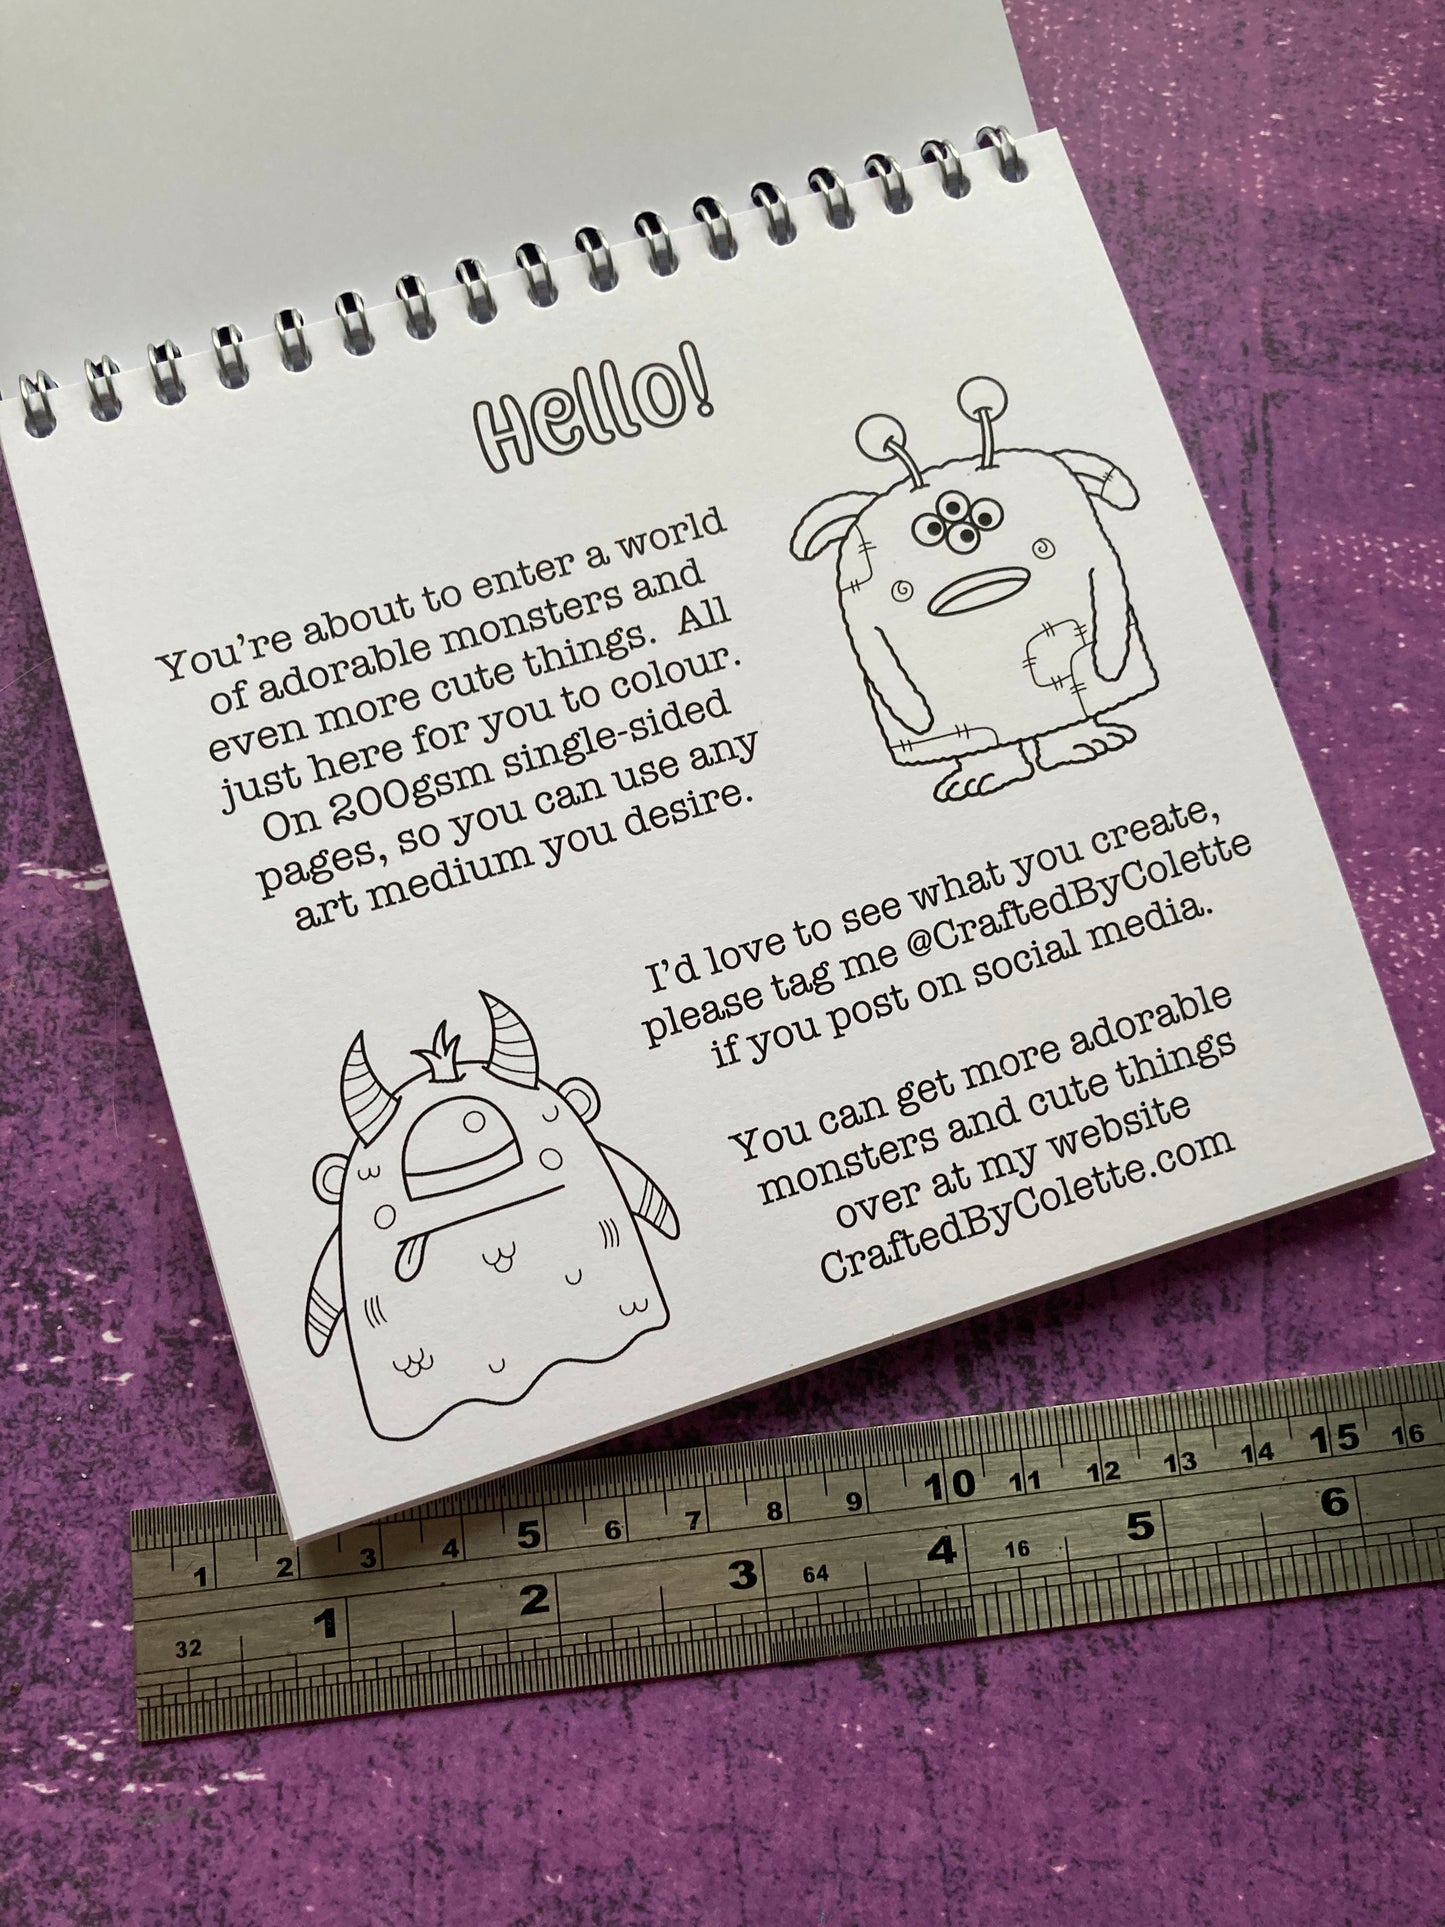 Hello!
You're about to enter a world
of adorable monsters and
even more cute things.  All
just here for you to colour.
On 200gsm single-sided
pages, so you can use any
art medium you desire.
I'd love to see what you create,
please tag me @CraftedByColette
if you post on social media.
You can get more adorable
monsters and cute things
over at my website
CraftedByColette.com
1 2 3 4 5 6 7 8 9 10 11 12 13 14 15 16
32 1 2 3 64 4 16 5 6